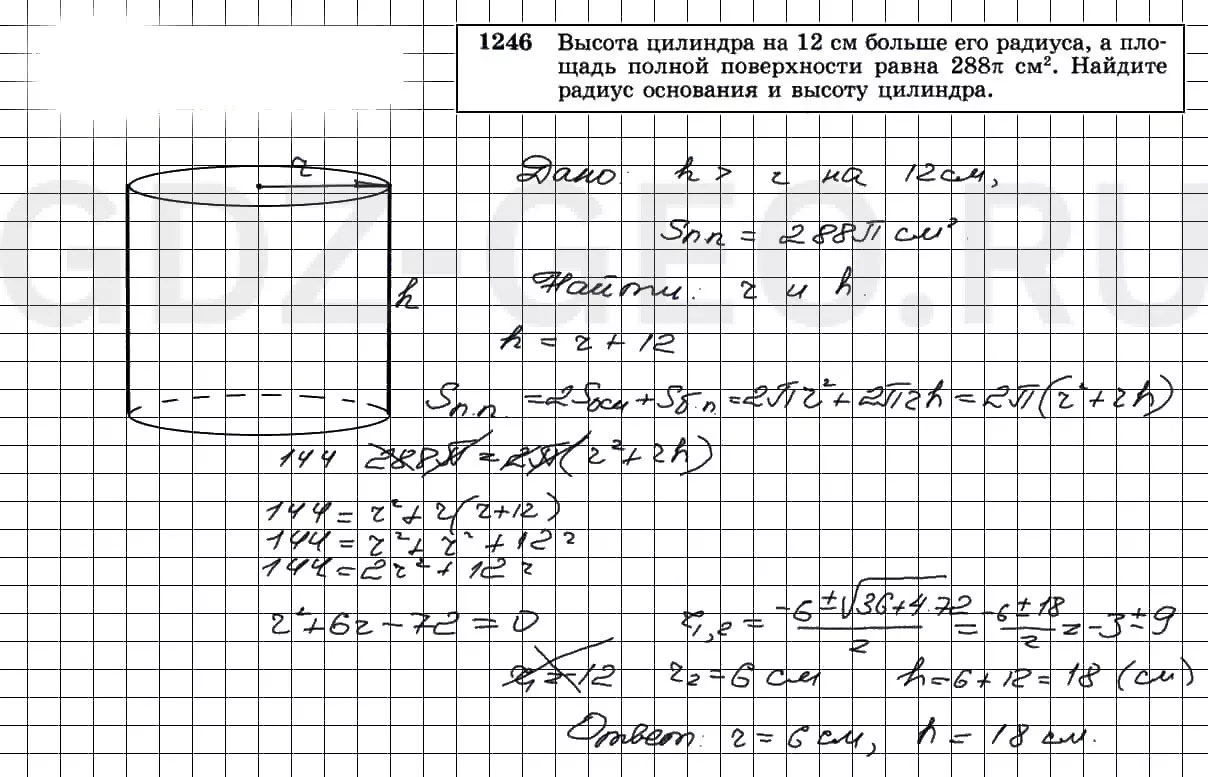 1246 Высота цилиндра на 12 см больше его радиуса, а пло-
щадь полной поверхности равна 288π см². Найдите
радиус основания и высоту цилиндра.
GDZ-GEO.RU
r
Дано: h > r на 12 см,
Sп.п = 288π см²
Найти: r и h.
h
h = r + 12
Sп.п. = 2Sосн + Sб.п. = 2πr² + 2πrh = 2π(r² + rh)
144 288π = 2π(r² + rh)
144 = r² + r(r + 12)
144 = r² + r² + 12r
144 = 2r² + 12r
r² + 6r − 72 = 0 r₁,₂ = (−6 ± √(36 + 4·72))/2 = (−6 ± 18)/2 = −3 ± 9
r₁ = −12 r₂ = 6 см h = 6 + 12 = 18 (см)
Ответ: r = 6 см, h = 18 см.